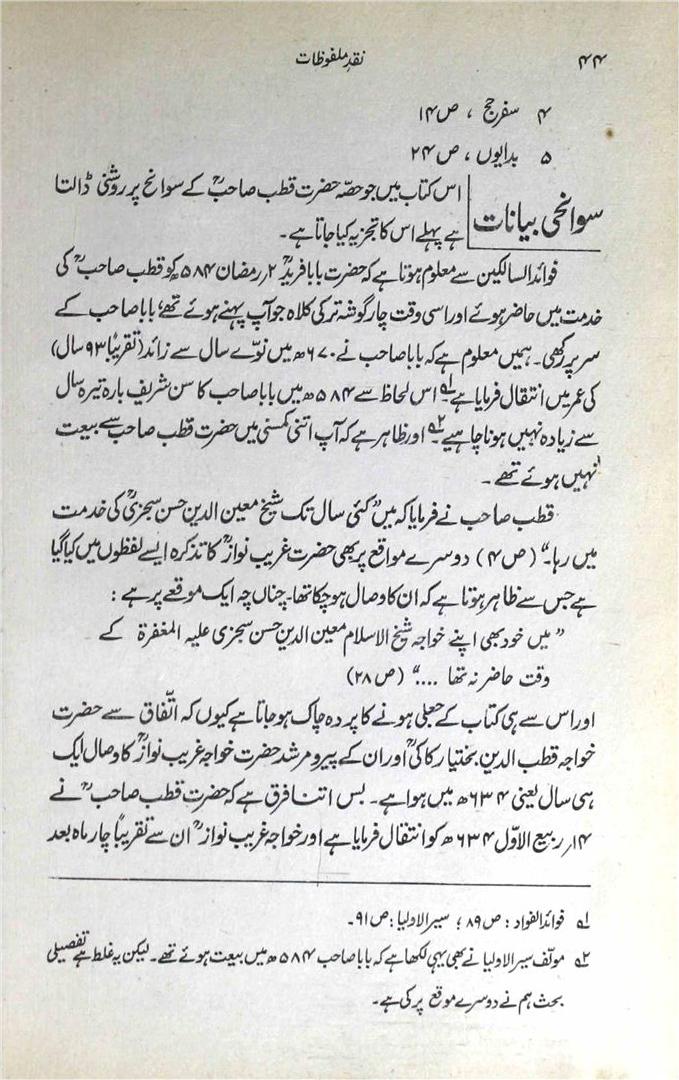 ۴۴
نقدِ ملفوظات
۴ سفرِ حج ، ص ۱۴
۵ بدایوں ، ص ۲۴
سوانحی بیانات
اس کتاب میں جو حصّہ حضرت قطب صاحبؒ کے سوانح پر روشنی ڈالتا
ہے پہلے اس کا تجزیہ کیا جاتا ہے۔
فوائد السالکین سے معلوم ہوتا ہے کہ حضرت بابا فریدؒ ۲؍ رمضان ۵۸۴ھ کو قطب صاحبؒ کی
خدمت میں حاضر ہوئے اور اسی وقت چار گوشہ ترکی کلاہ جو آپ پہنے ہوئے تھے، بابا صاحب کے
سر پر رکھی۔ ہمیں معلوم ہے کہ بابا صاحب نے ۶۷۰ھ میں نوّے سال سے زائد (تقریباً ۹۳ سال)
کی عمر میں انتقال فرمایا ہے۱ اس لحاظ سے ۵۸۴ھ میں بابا صاحب کا سن شریف بارہ تیرہ سال
سے زیادہ نہیں ہونا چاہیے۔۲ اور ظاہر ہے کہ آپ اتنی کمسنی میں حضرت قطب صاحب سے بیعت
نہیں ہوئے تھے۔
قطب صاحب نے فرمایا کہ میں ”کئی سال تک شیخ معین الدین حسن سجزیؒ کی خدمت
میں رہا۔“ (ص ۴) دوسرے مواقع پر بھی حضرت غریب نوازؒ کا تذکرہ ایسے لفظوں میں کیا گیا
ہے جس سے ظاہر ہوتا ہے کہ ان کا وصال ہو چکا تھا۔ چناں چہ ایک موقعے پر ہے :
”میں خود بھی اپنے خواجہ شیخ الاسلام معین الدین حسن سجزی علیہ المغفرۃ کے
وقت حاضر نہ تھا ....“ (ص ۲۸)
اور اس سے ہی کتاب کے جعلی ہونے کا پردہ چاک ہو جاتا ہے کیوں کہ اتّفاق سے حضرت
خواجہ قطب الدین بختیار کاکیؒ اور ان کے پیر و مرشد حضرت خواجہ غریب نوازؒ کا وصال ایک
ہی سال یعنی ۶۳۴ھ میں ہوا ہے۔ بس اتنا فرق ہے کہ حضرت قطب صاحبؒ نے
۱۴؍ ربیع الاوّل ۶۳۴ھ کو انتقال فرمایا ہے اور خواجہ غریب نوازؒ ان سے تقریباً چار ماہ بعد
۱ فوائد الفواد : ص ۸۹ ؛ سیر الاولیا : ص ۹۱۔
۲ مولف سیر الاولیا نے بھی یہی لکھا ہے کہ بابا صاحب ۵۸۴ھ میں بیعت ہوئے تھے۔ لیکن یہ غلط ہے تفصیلی
بحث ہم نے دوسرے موقع پر کی ہے۔